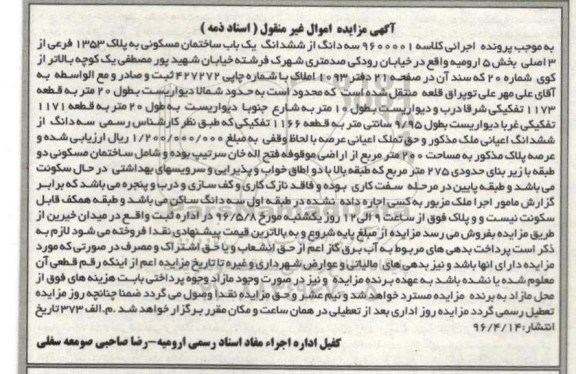 آگهی مزایده اموال غیر منقول ( اسناد ذمه )
به موجب پرونده اجرائی کلاسه ۹۶۰۰۰۰۱ سه دانگ از ششدانگ یک باب ساختمان مسکونی به پلاک ۱۳۵۳ فرعی از
۳ اصلی بخش ۵ ارومیه واقع در خیابان رودکی صدمتری شهرک فرشته خیابان شهید پور مصطفی یک کوچه بالاتر از
کوی شماره ۲۰ که سند آن در صفحه ۲۱ دفتر ۱۰۹۳ املاک با شماره چاپی ۴۲۷۲۷۲ ثبت و صادر و مع الواسطه به
آقای علی مهر علی توپراق قلعه منتقل شده است که محدود است به حدود شمالا دیواریست بطول ۲۰ متر به قطعه
۱۱۷۳ تفکیکی شرقا درب و دیواریست بطول ۱۰ متر به شارع جنوبا دیواریست به طول ۲۰ متر به قطعه ۱۱۷۱
تفکیکی غربا دیواریست بطول ۹/۹۵ سانتی متر به قطعه ۱۱۶۶ تفکیکی که طبق نظر کارشناس رسمی سه دانگ از
ششدانگ اعیانی ملک مذکور و حق تملک اعیانی عرصه با لحاظ وقفی به مبلغ ۱/۲۰۰/۰۰۰/۰۰۰ ریال ارزیابی شده و
عرصه پلاک مذکور به مساحت ۲۰۰ متر مربع از اراضی موقوفه فتح اله خان سرتیپ بوده و شامل ساختمان مسکونی دو
طبقه با زیر بنای حدودی ۲۷۵ متر مربع که طبقه بالا با دو اطاق خواب و پذیرایی و سرویسهای بهداشتی در حال سکونت
می باشد و طبقه پایین در مرحله سفت کاری بوده و فاقد نازک کاری و کف سازی و درب و پنجره می باشد که برابر
گزارش مامور اجرا ملک مزبور به کسی اجاره داده نشده در طبقه اول سه دانگ ساکن می باشد و طبقه همکف قابل
سکونت نیست و و پلاک فوق از ساعت ۹ الی ۱۲ روز یکشنبه مورخ ۹۶/۵/۸ در اداره ثبت واقع در میدان خیرین از
طریق مزایده بفروش می رسد مزایده از مبلغ پایه شروع و به بالاترین قیمت پیشنهادی نقدا فروخته می شود لازم به
ذکر است پرداخت بدهی های مربوط به آب برق گاز اعم از حق انشعاب و یا حق اشتراک و مصرف در صورتی که مورد
مزایده دارای انها باشد و نیز بدهی های مالیاتی و عوارض شهرداری و غیره تا تاریخ مزایده اعم از اینکه رقم قطعی آن
معلوم شده یا نشده باشد به عهده برنده مزایده و نیز در صورت وجود مازاد وجوه پرداختی بابت هزینه های فوق از
محل مازاد به برنده مزایده مسترد خواهد شد و نیم عشر و حق مزایده نقدا وصول می گردد ضمنا چنانچه روز مزایده
تعطیل رسمی گردد مزایده روز اداری بعد از تعطیلی در همان ساعت و مکان مقرر برگزار خواهد شد .م.الف ۳۷۳ تاریخ
انتشار: ۹۶/۴/۱۴
کفیل اداره اجراء مفاد اسناد رسمی ارومیه-رضا صاحبی صومعه سفلی